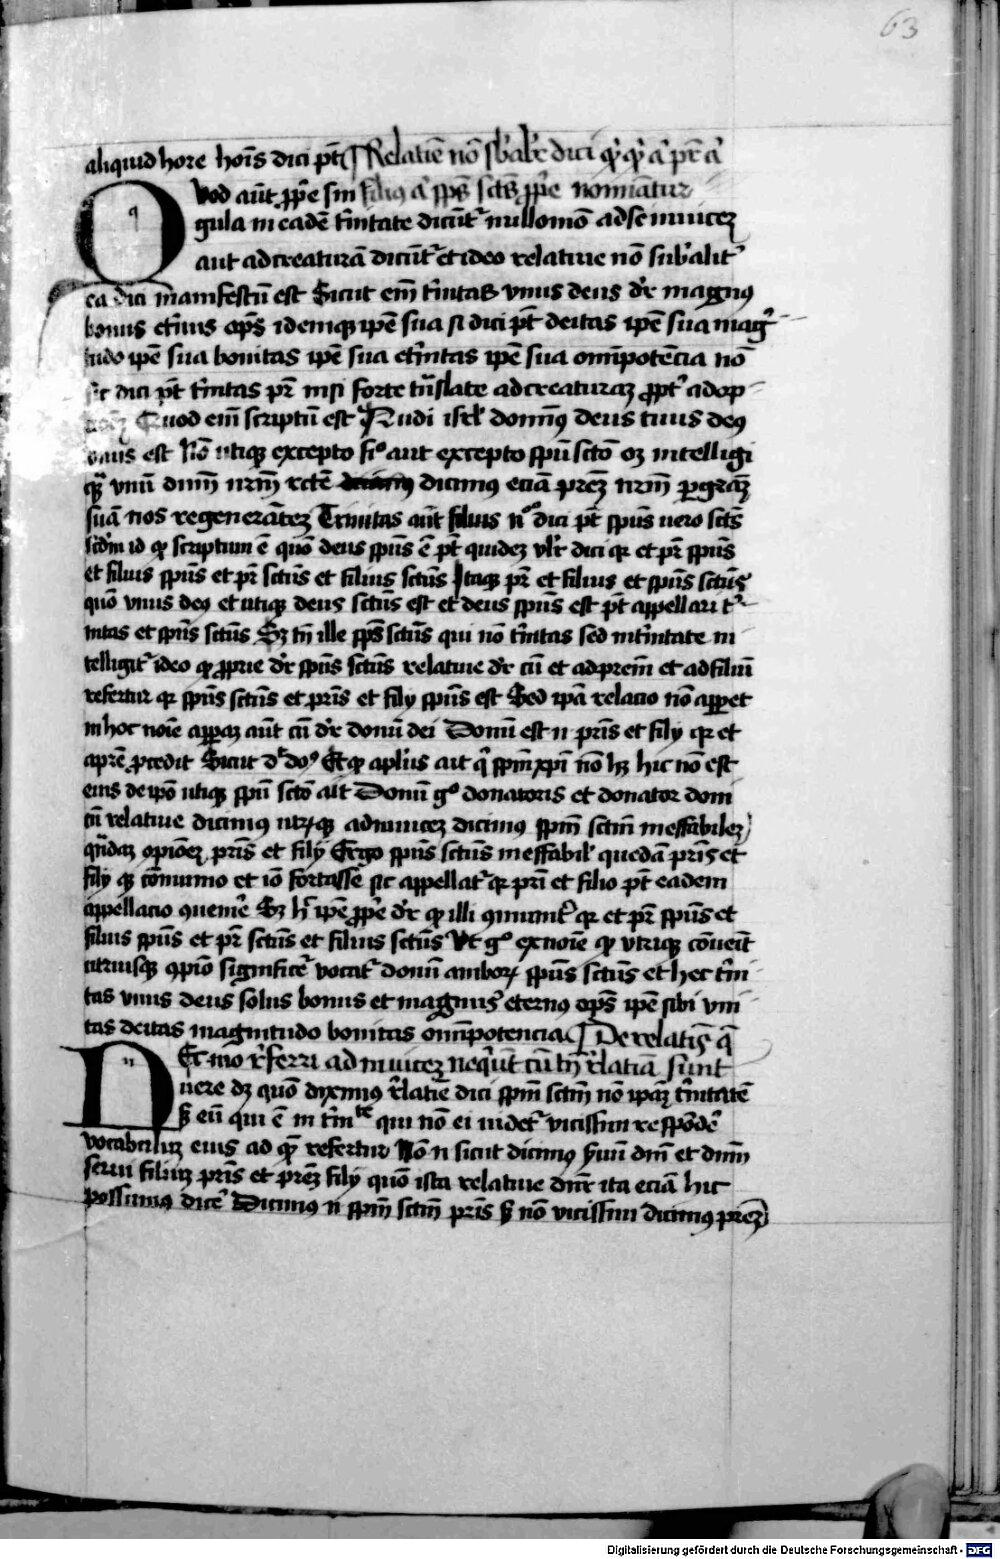 63
aliquid hore hoīs dici pt̄ Relatiē nō sb̓alr̄ dici
Vod aūt ꝓp̄e sin filiꝯ sp̄s sct̄s ꝓp̄e nomīatur
gula in eadē tīnitate dicūt᷑ nullomō ad se inuicez
aut ad creaturā dicūt᷑ et ideo relatiue nō sub̓alit᷑
ea dici manifestū est Sicut em̄ tīnitas vnus deus dr̄ magnꝯ
bonus et̓nus op̄s idemqꝫ ip̄e sua sic dici pt̄ deitas ip̄e sua mag̓
tudo ip̄e sua bonitas ip̄e sua et̓nitas ip̄e sua om̄ipotēcia nō
sic dici pt̄ tīnitas pr̄ nisi forte tn̄slate ad creaturaꝫ ꝓpt᷑ adop
Quod em̄ scriptū est Audi isrl̄ domn̄ꝯ deus tuus deꝯ
vnus est Nō utiqꝫ excepto fi° aut excepto sp̄u sct̄o oꝫ intelligi
vnū dnm̄ nrm̄ rct̄ē dicimꝯ eciā prēꝫ nrm̄ ꝑ grāꝫ
suā nos regenerāteꝫ Trinitas aūt filius n° dici pt̄ sp̄us uero sct̄s
scd̄m id qꝫ scriptum ē quō deus sp̄us ē pt̄ quideꝫ vlr̄ dici qꝛ et pr̄ sp̄us
et filius sp̄us et pr̄ sct̄us et filius sct̄us Itaqꝫ pr̄ et filius et sp̄us sct̄us
quō vnus deꝯ et utiqꝫ deus sct̄us est et deus sp̄us est pt̄ appellari t᷑
nitas et sp̄us sct̄us Sꝫ tn̄ ille sp̄s sct̄us qui nō tīnitas sed in tīnitate in
telligit᷑ ideo qꝫ ꝓprie dr̄ sp̄us sct̄us relatiue dr̄ cū et ad prem̄ et ad filiū
refertur qꝛ sp̄us sct̄us et prīs et filij sp̄us est Sed ip̄a relacio nō apꝑet
in hoc noīe apꝑaꝫ aūt cū dr̄ donū dei Donū est n̄ prīs et filij qꝛ et
a prē ꝓcedit Sicut d᷑ do᷑ Et qꝫ apl̄us ait q̄ sp̄m xp̄i nō hꝫ hic nō est
eius de ip̄o utiqꝫ sp̄u sct̄o ait Donū g° donatoris et donator doni
cū relatiue dicimꝯ utrꝫqꝫ ad inuiceꝫ dicimꝯ sp̄m sct̄m ineffabileꝫ
qn̄daꝫ opiōeꝫ prīs et filij Ergo sp̄us sct̄us ineffabil̓ quedā prīs et
filij qꝫ cōmunio et iō fortasse sic appellat᷑ qꝛ pri et filio pt̄ eadem
appellacio ꝯuenir̓e Sꝫ h̄ ip̄e ꝓp̄e dr̄ qꝫ illi ꝯmunit᷑ qꝛ et pr̄ sp̄us et
filius sp̄us et pr̄ sct̄us et filius sct̄us Vt g° ex noīe qꝫ vtriqꝫ cōueit̄
utriusqꝫ ꝯpio significet᷑ vocat᷑ donū amboꝝ sp̄us sct̄us et hec tīni
tas vnus deus solus bonus et magnus et̓nus op̄s ip̄e sibi vni
tas deitas magnitudo bonitas om̄ipotencia De relatis q̄
Ec mo r̄ferri ad inuiceꝫ neq̓ūt cū tn̄ r̄latiā sunt
uere dꝫ quō diximꝯ r̄latiē dici sp̄m sct̄m nō ip̄aꝫ tīnitatē
sꝫ eū qui ē in tīni^te qui nō ei uidet᷑ vicissim respōder̓
vocabulum eius ad qꝫ refertur Nō n̄ sicut dicimꝯ suū dm̄ et dnm̄
serui filiuꝫ prīs et prēꝫ filij quō ista relatiue dnr̄ ita eciā hic
possumꝯ dicer̓ Dicimꝯ n̄ sp̄m sct̄m prīs sꝫ nō vicissim dicimꝯ preꝫ
Digitalisierung gefördert durch die Deutsche Forschungsgemeinschaft - DFG